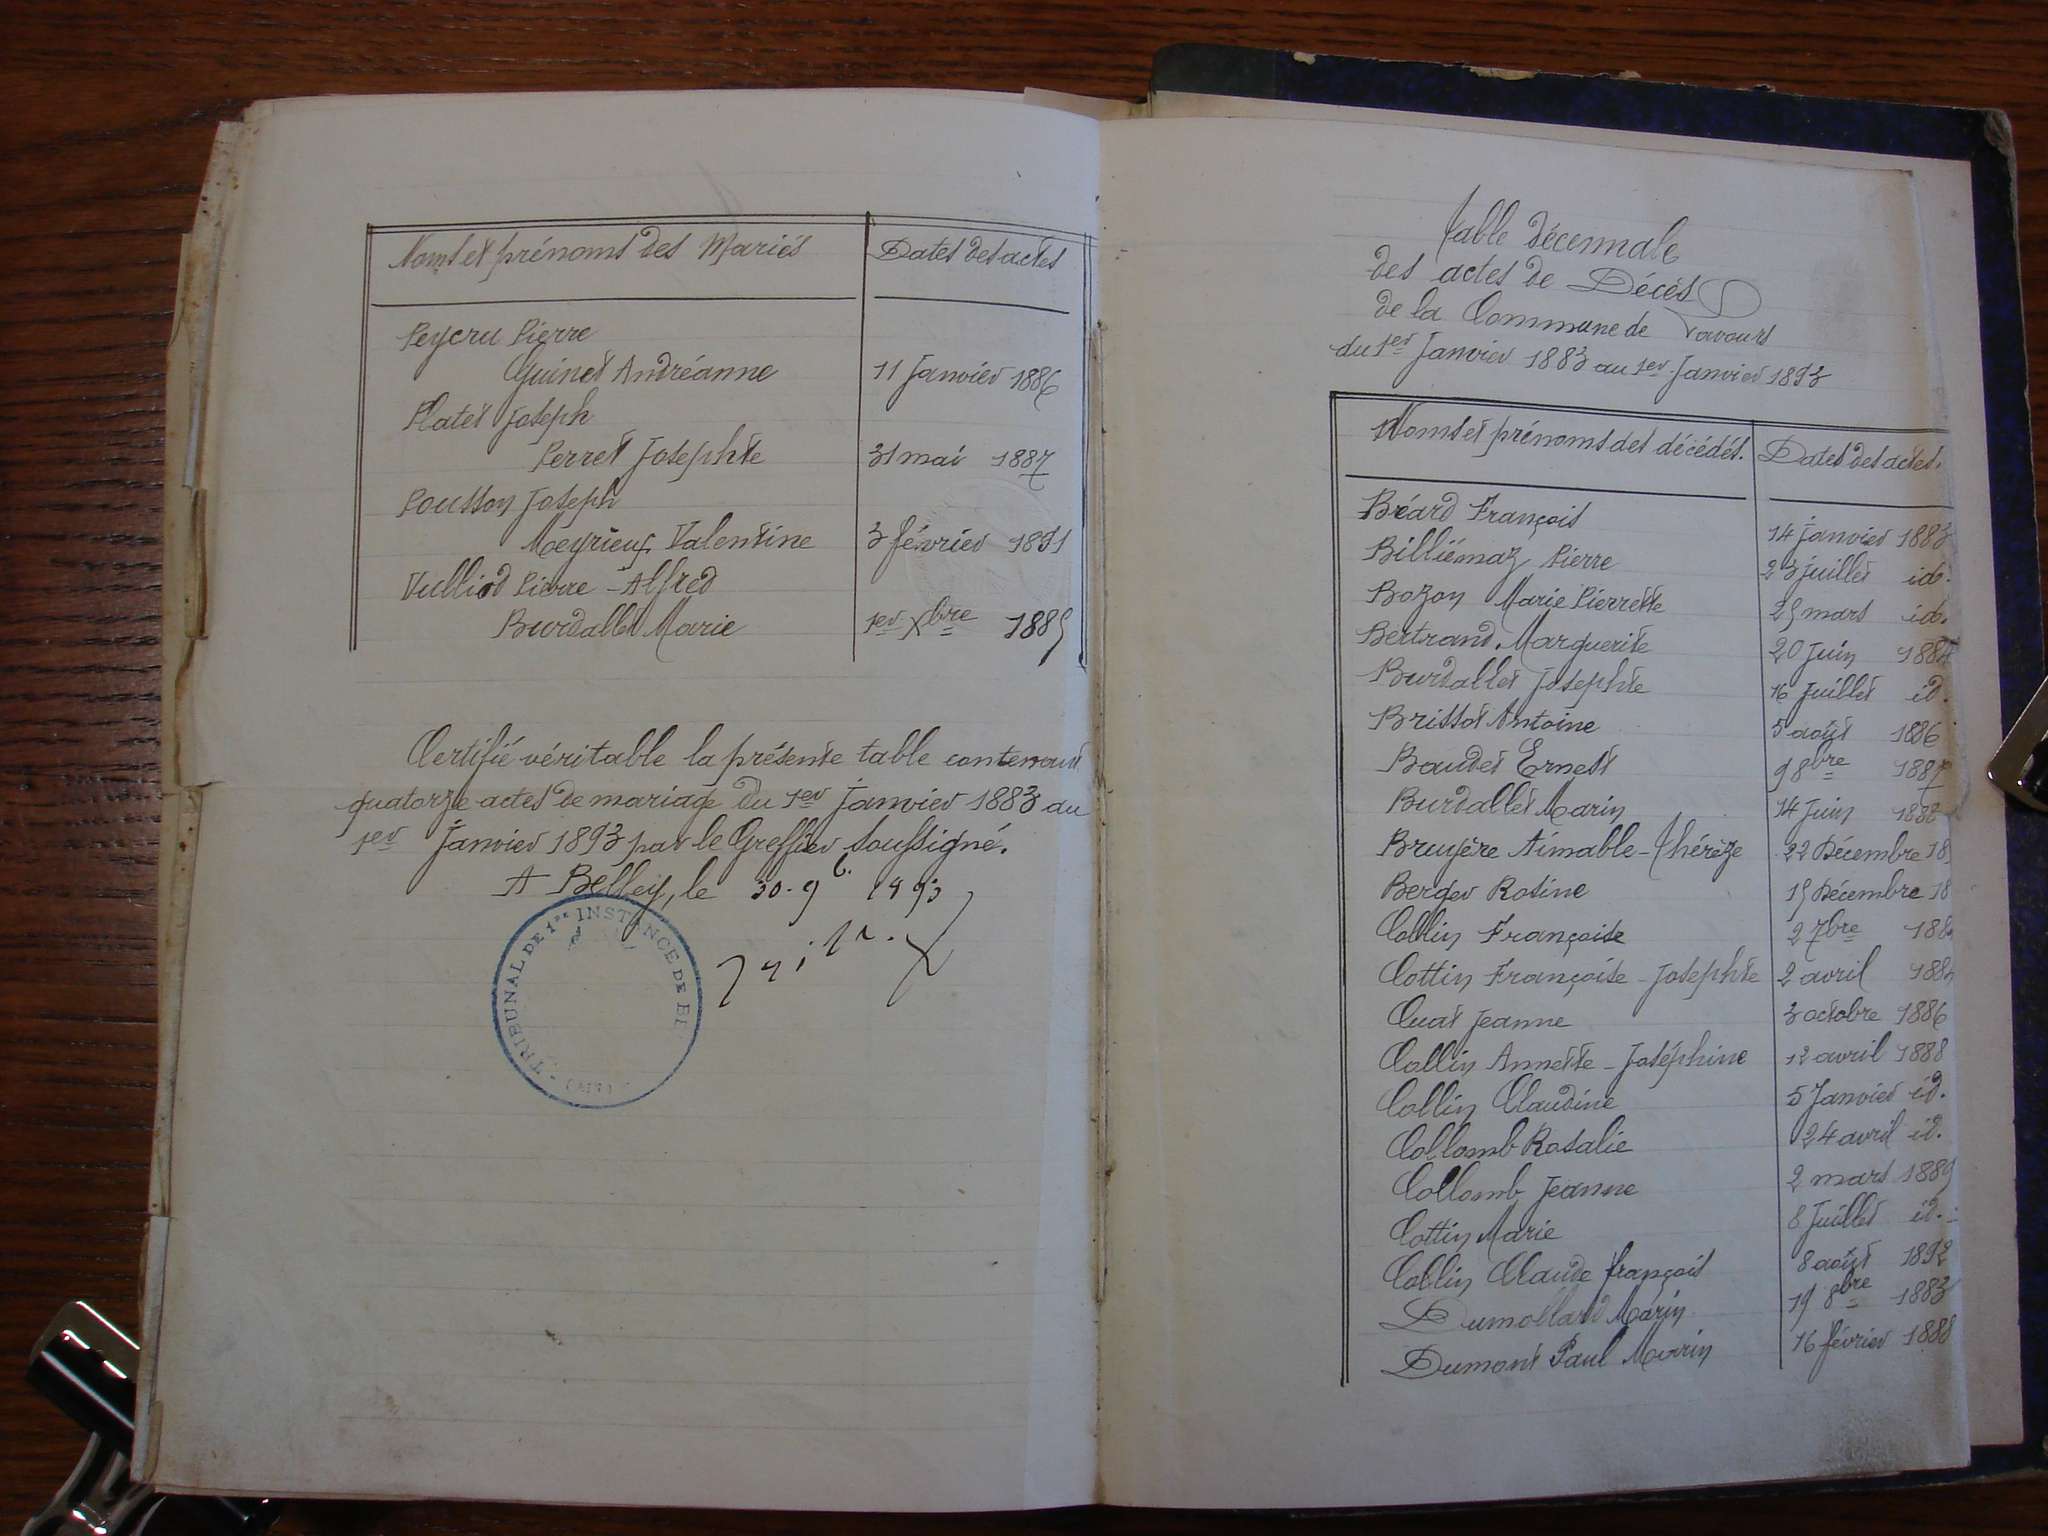 Noms et prénoms des Mariés
Dates des actes
Peycru Pierre
Guinet Andréanne 11 Janvier 1886
Platet Joseph
Perret Josephte 31 mai 1887
Pousson Joseph
Meyrieux Valentine 3 février 1891
Vulliod Pierre-Alfred
Burdallet Marie 1er Xbre 1885
Certifié véritable la présente table contenant
quatorze actes de mariage du 1er Janvier 1883 au
1er Janvier 1893 par le Greffier soussigné.
A Belley, le 30 - 9 1893
TRIBUNAL DE 1RE INSTANCE DE BE
(AIN)
Table décennale
des actes de Décés
de la Commune de Lavours
du 1er Janvier 1883 au 1er Janvier 1893
Noms et prénoms des décédés. Dates des actes.
Bréard François 14 janvier 1883
Billiémaz Pierre 23 juillet id.
Bozon Marie Pierrette 25 mars id.
Bertrand Marguerite 20 Juin 1884
Burdallet Josephte 16 Juillet id.
Brissot Antoine 5 août 1886
Baudet Ernest 9 8bre 1887
Burdallet Marin 14 Juin 1888
Bruyère Aimable-Thérèze 22 Décembre 18
Berger Rosine 15 Décembre 18
Collin Françoise 2 7bre 188
Cottin Françoise-Josephte 2 avril 188
Cuat Jeanne 3 octobre 1886
Collin Annette-Joséphine 12 avril 1888
Collin Claudine 5 Janvier id.
Collomb Rosalie 24 avril id.
Collomb Jeanne 2 mars 1889
Cottin Marie 8 Juillet id.
Collin Claude françois 8 août 1892
Dumollard Marin 19 8bre 1883
Dumont Paul Marin 16 février 1888